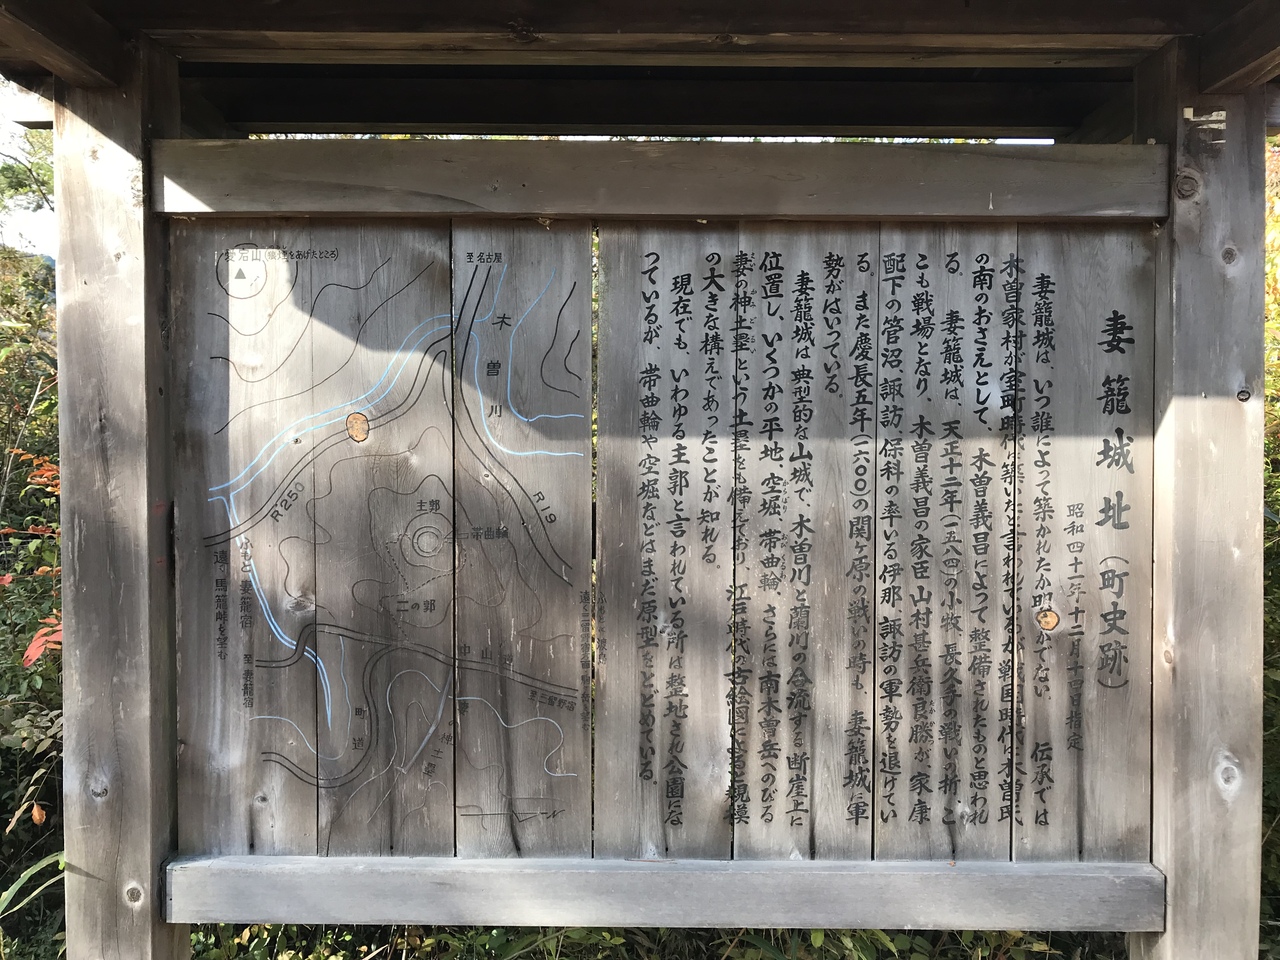 妻籠城址(町史跡)
昭和四十一年十二月十四日指定
妻籠城は、いつ誰によって築かれたか明かでない。 伝承では
木曽家村が室町時代に築いたと言われているが戦国時代は木曽氏
の南のおさえとして、木曽義昌によって整備されたものと思われ
る。 妻籠城は、天正十二年(一五八四)の小牧、長久手の戦いの折、こ
こも戦場となり、木曽義昌の家臣 山村甚兵衛良勝が、家康
配下の管沼、諏訪、保科の率いる伊那、諏訪の軍勢を退けてい
る。 また慶長五年(一六〇〇)の関ヶ原の戦いの時も、妻籠城に軍
勢がはいっている。
妻籠城は典型的な山城で、木曽川と蘭川の合流する断崖上に
位置し、いくつかの平地、空堀、帯曲輪、さらには南木曽岳へのびる
妻の神土塁という土塁をも備えており、江戸時代の古絵図によると規模
の大きな構えであったことが知れる。
現在でも、いわゆる主郭と言われている所は整地され公園にな
っているが、帯曲輪や空堀などはまだ原型をとどめている。
愛宕山(狼煙をあげたところ)
至名古屋
木曽川
R19
R250
主郭
帯曲輪
二の郭
中山道
至三留野宿
ふもと 妻籠宿
遠く馬籠峠を望む
至 妻籠宿
町道
妻の神土塁